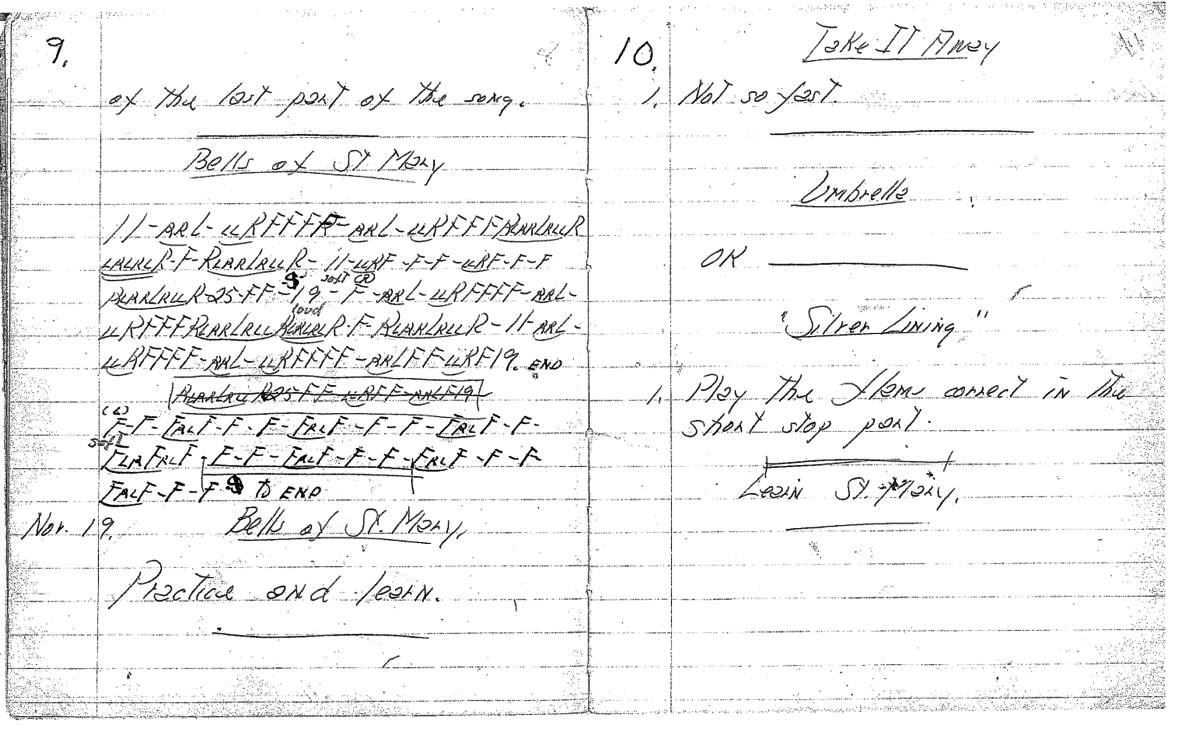 9.
of the last part of the song.
Bells of St. Mary
11-ARL-LLRFFFFR-ARL-LLRFFFFRLARLRLLR
R-F-RLARLRLLR-11-LLRF-F-F-LLRF-F-F
soft (R)
RLARLRLLR-25-FF-19-F-ARL-LLRFFFF-ARL-
loud
LLRFFFFRLARLRLL R-F-RLARLRLLR-11-ARL-
LLRFFFFF-ARL-LLRFFFFF-ARLFF-LLRF19. END
(L)
F-F-FRLF-F-F-FRLF-F-F-FRLF-F-
soft
FLRFRLF-F-F-FRLF-F-F-FRLF-F-F
FRLF-F-F TO END
Nov. 19. Bells of St. Mary,
Practice and learn.
10.
Take IT Away
1. Not so fast.
Umbrella
OK
"Silver Lining"
1. Play the flams correct in the
short stop part.
Learn St. Mary.